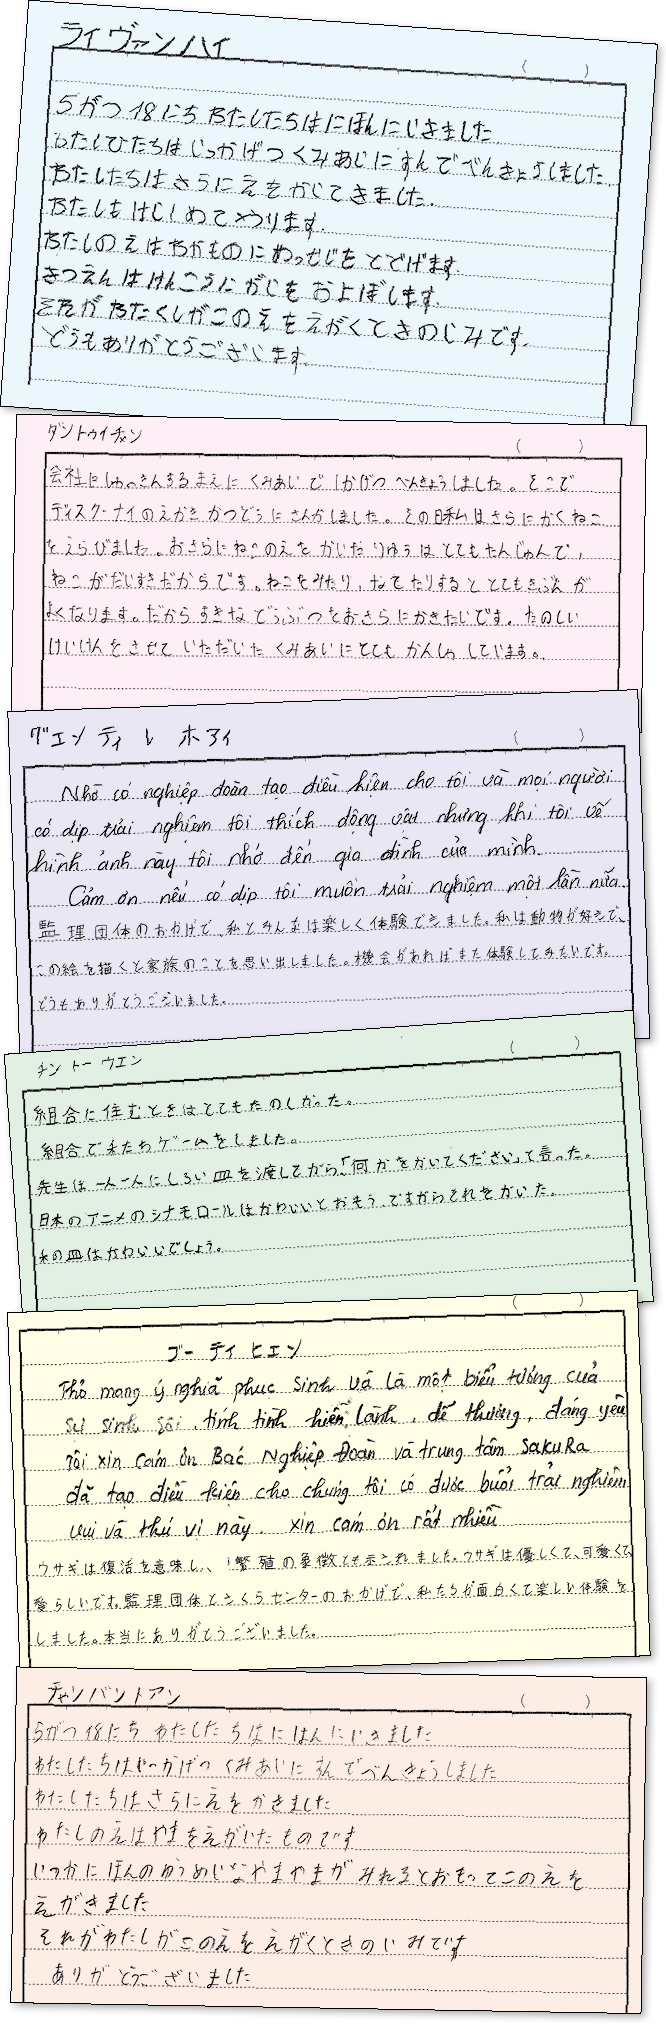 ライ ヴァン ハイ
( )
5がつ18にち わたしたちはにほんにいきました
わたしひたちはじっかげつくみあいにすんでべんきょうしました.
わたしたちはさらにえをかいてきました.
わたしもはじめてやります.
わたしのえはわかものにめっせじをとどけます.
きつえんはけんこうにがいをおよぼします.
それがわたくしがこのえをえがくときのいみです.
どうもありがとうございます.
ダン トゥイ チャン
( )
会社にしゅっきんするまえにくみあいで1かげつべんきょうしました。そこで
ディスク・ナイのえかきかつどうにさんかしました。その日私はさらにかくねこ
をえらびました。おさらにねこのえをかいたりゆうはとてもたんじゅんで,
ねこがだいすきだからです。ねこをみたり,なでたりするととてもきぶんが
よくなります。だからすきなどうぶつをおさらにかきたいです。たのしい
けいけんをさせていただいたくみあいにとてもかんしゃしています。
グエン ティ レ ホアイ
( )
Nhờ có nghiệp đoàn tạo điều kiện cho tôi và mọi người
có dịp trải nghiệm tôi thích động vật nhưng khi tôi vẽ
hình ảnh này tôi nhớ đến gia đình của mình.
Cảm ơn nếu có dịp tôi muốn trải nghiệm một lần nữa.
監理団体のおかげで、私とみんなは楽しく体験できました。私は動物が好きで、
この絵を描くと家族のことを思い出しました。機会があればまた体験してみたいです。
どうもありがとうございました。
チン トー ウエン
( )
組合に住むときはとてもたのしかった。
組合で私たちゲームをしました。
先生は一人一人にしろい皿を渡してから、「何かをかいてください」と言った。
日本のアニメのシナモロールはかわいいとおもう、ですからそれをかいた。
私の皿はかわいいでしょう。
( )
ブー ティ ヒエン
Thỏ mang ý nghĩa phục sinh và là một biểu tượng của
sự sinh sôi, tính tình hiền lành, dễ thương, đáng yêu
Tôi xin cảm ơn Bác Nghiệp Đoàn và trung tâm SAKURA
đã tạo điều kiện cho chúng tôi có được buổi trải nghiệm
vui và thú vị này. xin cảm ơn rất nhiều
ウサギは復活を意味し、、繁殖の象徴とも示されました。ウサギは優しくて、可愛くて、
愛らしいです。監理団体とさくらセンターのおかげで、私たちが面白くて楽しい体験を
しました。本当にありがとうございました。
チャン バン トアン
( )
5がつ18にち わたしたちはにほんにいきました
わたしたちはいっかげつくみあいにすんでべんきょうしました
わたしたちはさらにえをかきました
わたしのえはやまをえがいたものです
いつかにほんのゆうめいなやまやまがみれるとおもってこのえを
えがきました
それがわたしがこのえをえがくときのいみです
ありがとうございました